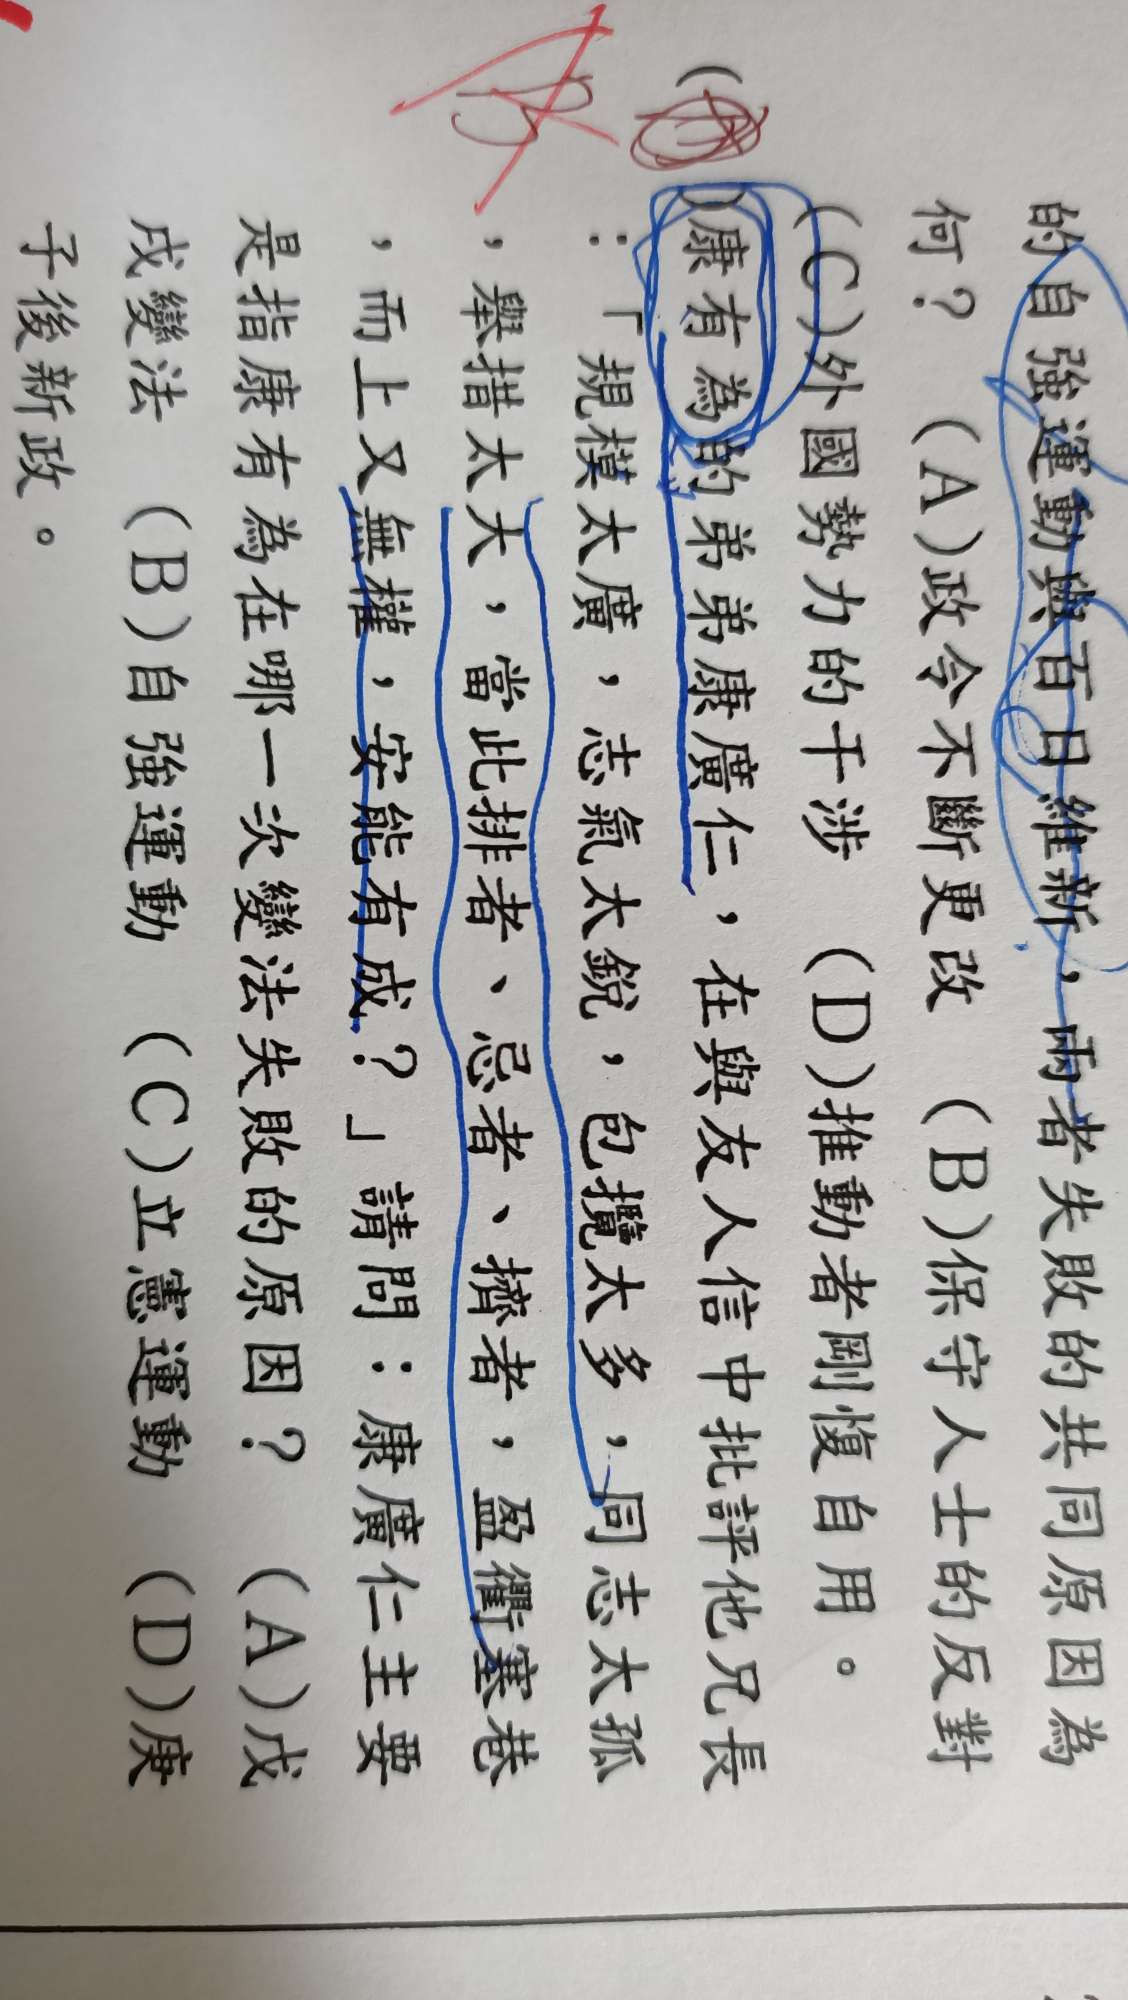 的自強運動與百日維新，兩者失敗的共同原因為
何？　(A)政令不斷更改　(B)保守人士的反對
(C)外國勢力的干涉　(D)推動者剛愎自用。
(　)康有為的弟弟康廣仁，在與友人信中批評他兄長
：「規模太廣，志氣太銳，包攬太多，同志太孤
，舉措太大，當此排者、忌者、擠者，盈衢塞巷
，而上又無權，安能有成？」請問：康廣仁主要
是指康有為在哪一次變法失敗的原因？　(A)戊
戌變法　(B)自強運動　(C)立憲運動　(D)庚
子後新政。